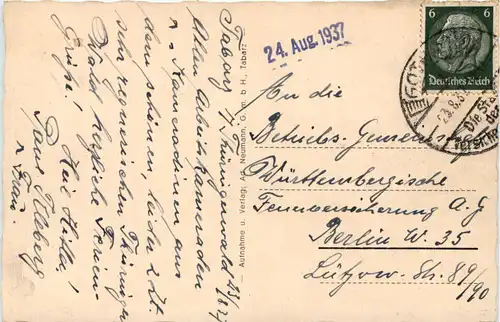 Tabarz / Thüringerwald 23/8.37
Allen Arbeitskameraden
u. Kameradinnen aus
dem schönen, leider z. Zt.
sehr regnerischen Thüringer
Wald herzliche Ferien-
Grüße!
Heil Hitler,
Paul
u. Frau.
Aufnahme u. Verlag: Neumann, G. m. b. H., Tabarz
24. Aug. 1937
6 6
Deutsches Reich
GOT
23.8.3
Die St
An die
Betriebs-Gemeinschaft
Württembergische
Feuerversicherung A. G
Berlin W. 35
Lützow-Str. 89/90